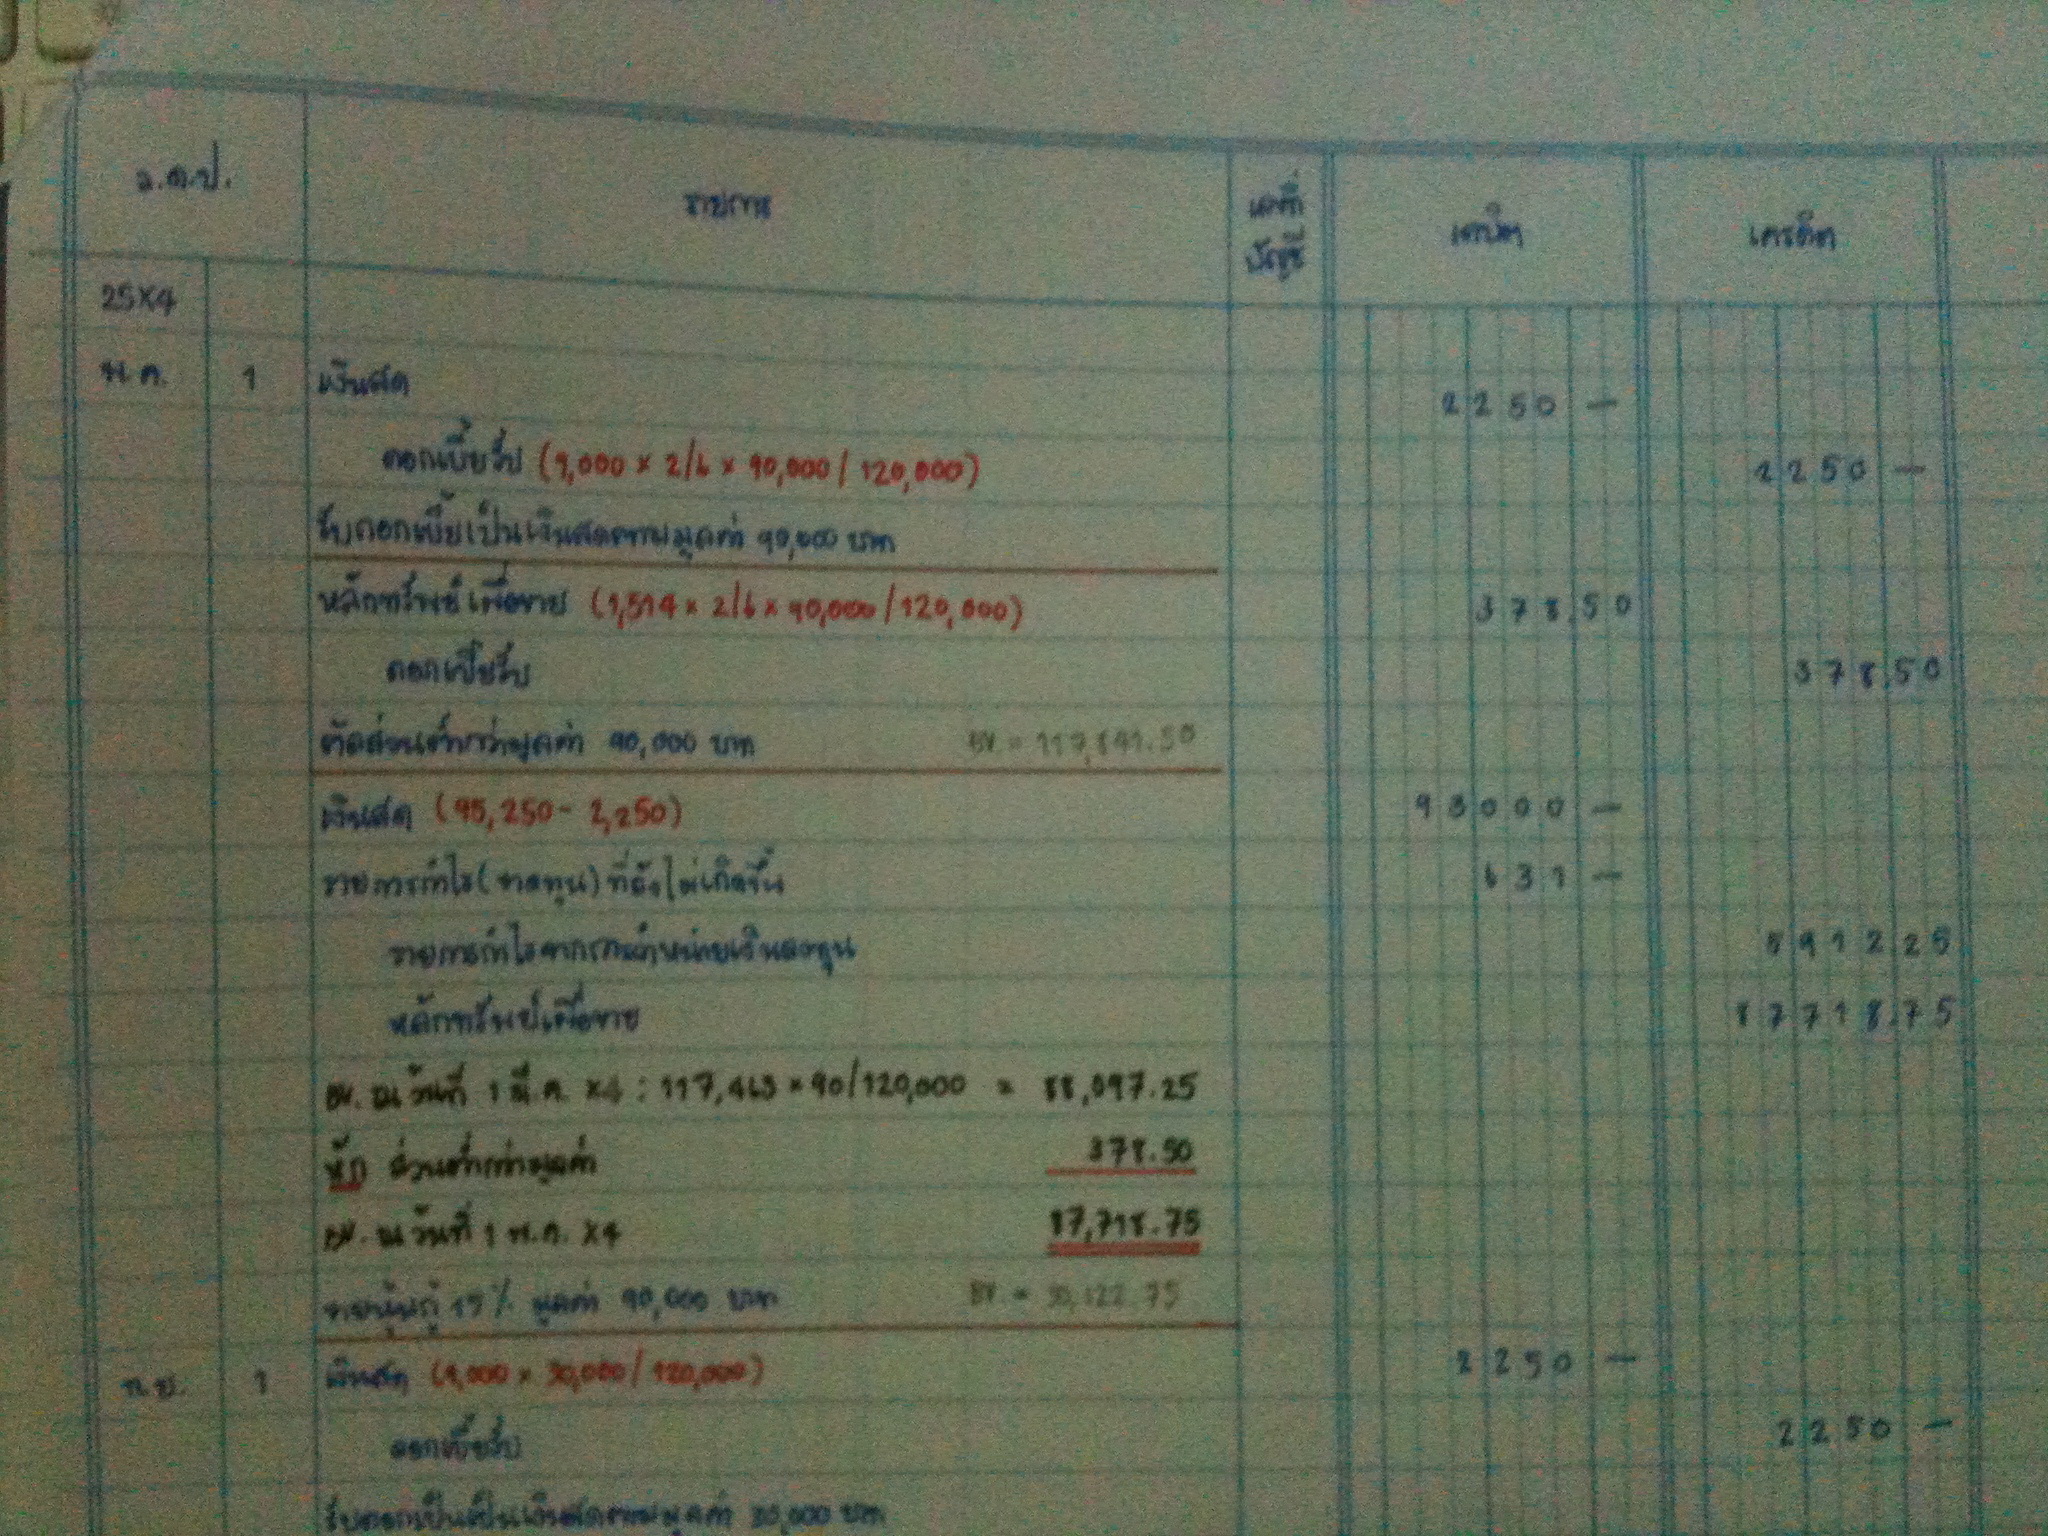 ว.ด.ป. รายการ เลขที่บัญชี เดบิต เครดิต
25X4
พ.ค. 1 เงินสด 2250 —
ดอกเบี้ยรับ (9,000 × 2/6 × 90,000 / 120,000) 2250 —
รับดอกเบี้ยเป็นเงินสดตามมูลค่า 90,000 บาท
หลักทรัพย์เผื่อขาย (1,514 × 2/6 × 90,000 / 120,000) 378.50
ดอกเบี้ยรับ 378.50
ตัดส่วนต่ำกว่ามูลค่า 90,000 บาท BV = 117,841.50
เงินสด (95,250 - 2,250) 93000 —
รายการกำไร(ขาดทุน) ที่ยังไม่เกิดขึ้น 631 —
รายการกำไรจากการจำหน่ายเงินลงทุน 5912 25
หลักทรัพย์เผื่อขาย 87718.75
BV. ณ วันที่ 1 มี.ค. X4 : 117,463 × 90/120,000 = 88,097.25
หัก ส่วนต่ำกว่ามูลค่า 378.50
BV. ณ วันที่ 1 พ.ค. X4 87,718.75
ขายหุ้นกู้ 15% มูลค่า 90,000 บาท BV = 30,122.75
พ.ย. 1 เงินสด (9,000 × 30,000 / 120,000) 2250 —
ดอกเบี้ยรับ 2250 —
รับดอกเบี้ยเป็นเงินสดตามมูลค่า 30,000 บาท